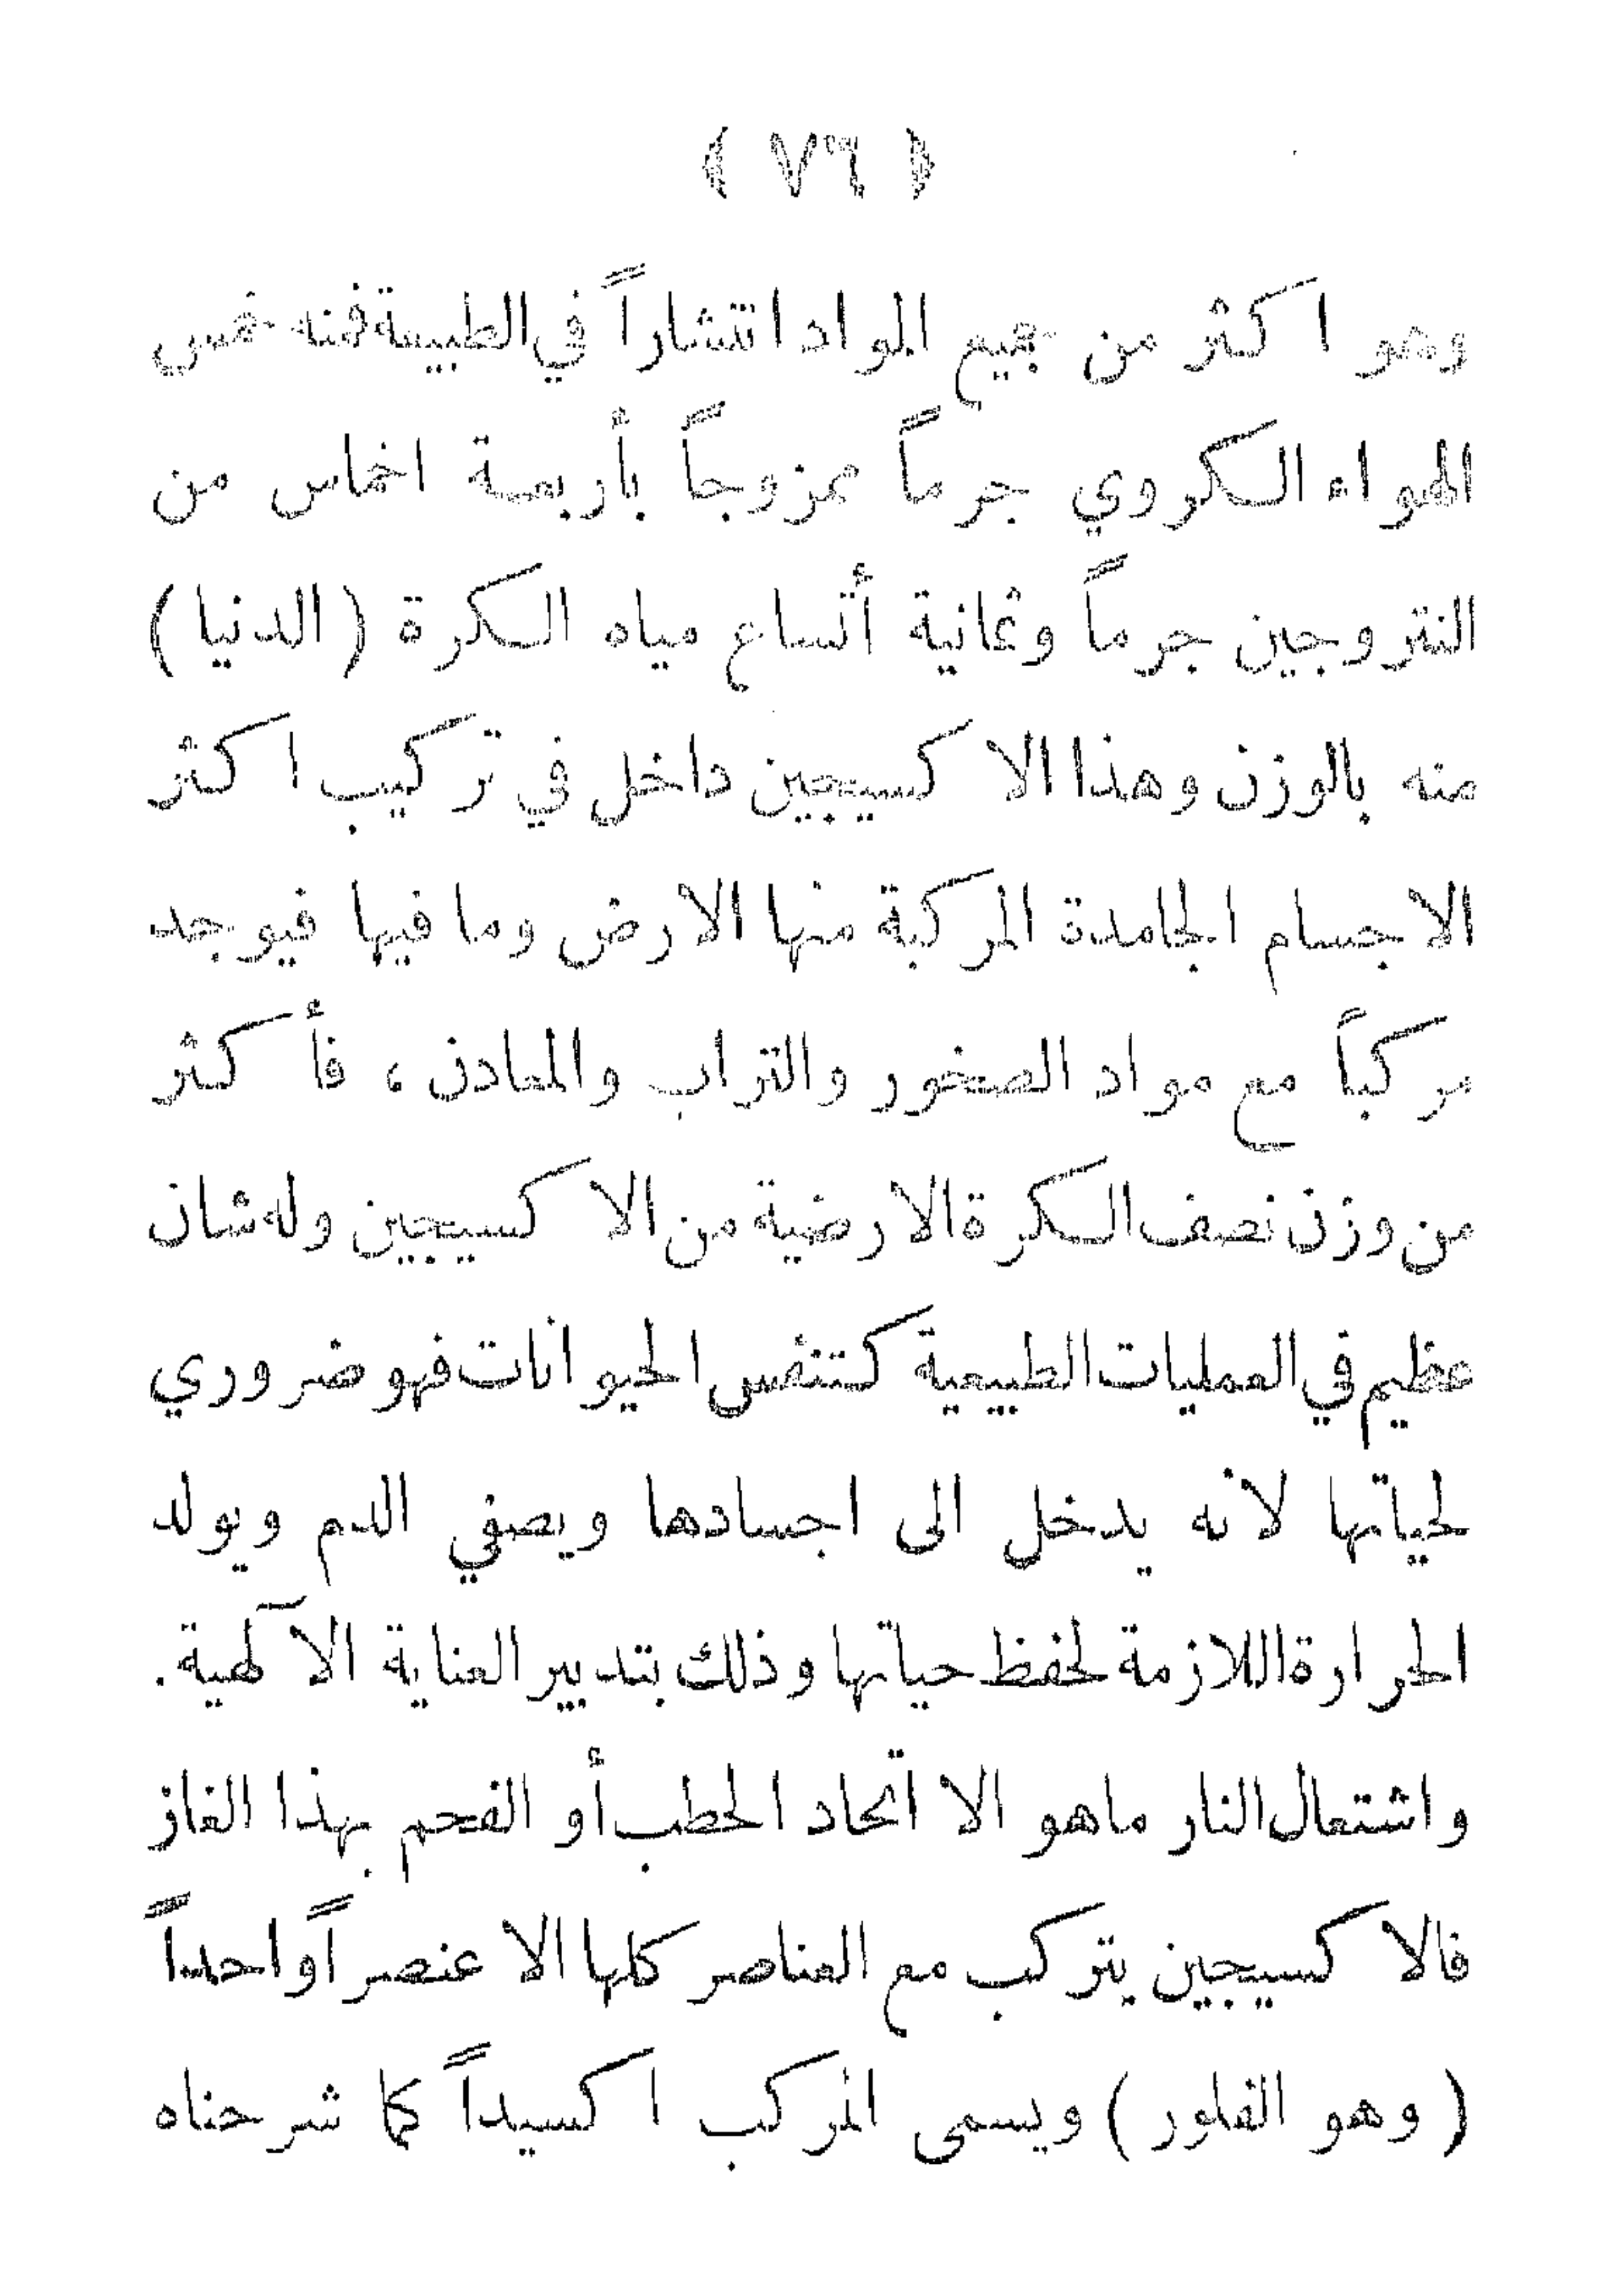 ﴿ ٧٦ ﴾
وهو اكثر من جميع المواد انتشاراً في الطبيعة فمنه خمس
الهواء الكروي جرماً ممزوجاً بأربعة اخماس من
النتروجين جرماً وثمانية أتساع مياه الكرة (الدنيا)
منه بالوزن وهذا الاكسيجين داخل في تركيب اكثر
الاجسام الجامدة المركبة منها الارض وما فيها فيوجد
مركباً مع مواد الصخور والتراب والمعادن ، فأكثر
من وزن نصف الكرة الارضية من الاكسيجين وله شان
عظيم في العمليات الطبيعية كتنفس الحيوانات فهو ضروري
لحياتها لانه يدخل الى اجسادها ويصفي الدم ويولد
الحرارة اللازمة لحفظ حياتها وذلك بتدبير العناية الآلهية.
واشتعال النار ماهو الا اتحاد الحطب أو الفحم بهذا الغاز
فالاكسيجين يتركب مع العناصر كلها الا عنصراً واحداً
(وهو الفلور) ويسمى المركب اكسيداً كما شرحناه